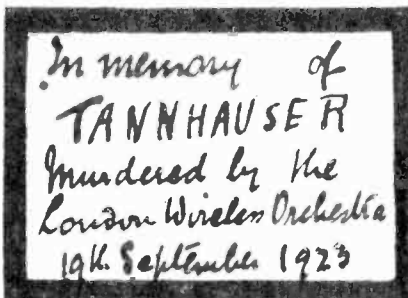 In memory of
TANNHAUSER
Murdered by the
London Wireless Orchestra
19th September 1923